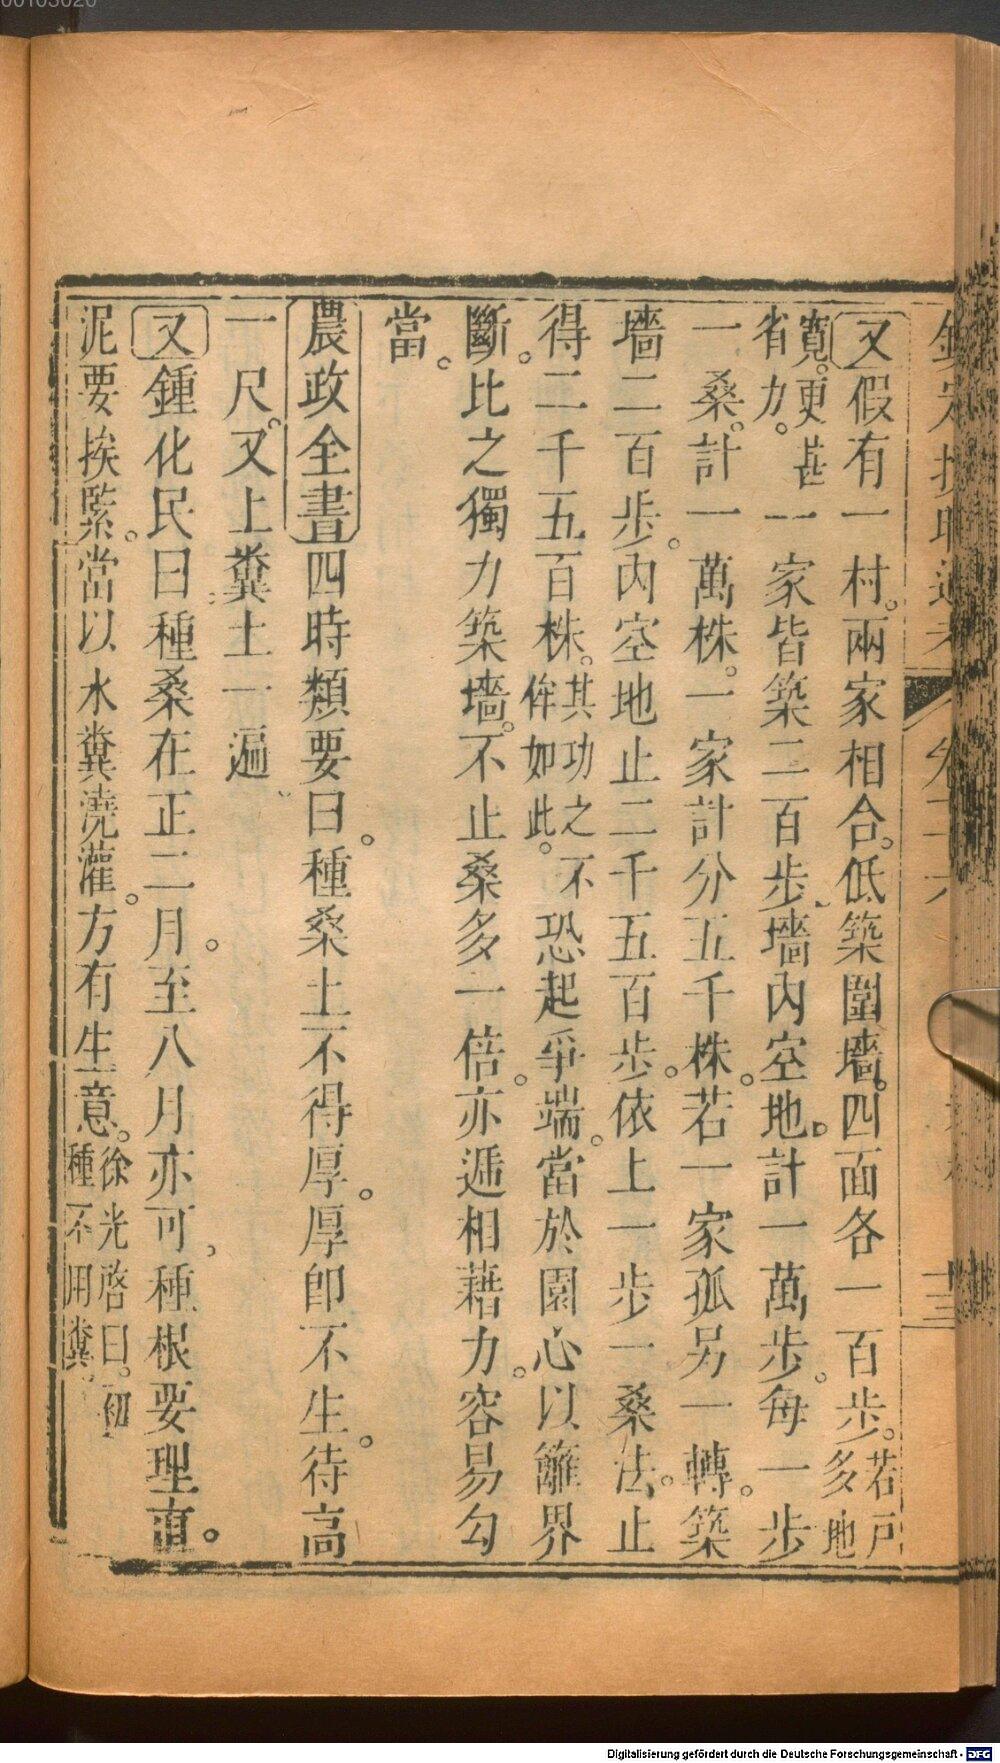 00103020
欽定授時通考
又假有一村。兩家相合。低築圍墻。四面各一百步。若戶多地
寬。更甚省力。一家皆築二百步。墻內空地。計一萬步。每一步
一桑。計一萬株。一家計分五千株。若一家孤另一轉。築
墻二百步。內空地止二千五百步。依上一步一桑法。止
得二千五百株。其功之不侔如此。恐起爭端。當於園心以籬界
斷。比之獨力築墻。不止桑多一倍。亦遞相藉力。容易勾
當。
農政全書四時類要曰。種桑土不得厚。厚即不生。待高
一尺。又上糞土一遍
又鍾化民曰種桑在正二月。至八月亦可。種根要理直。
泥要挨緊。當以水糞澆灌。方有生意。徐光啓曰。初種不用糞
Digitalisierung gefördert durch die Deutsche Forschungsgemeinschaft - DFG